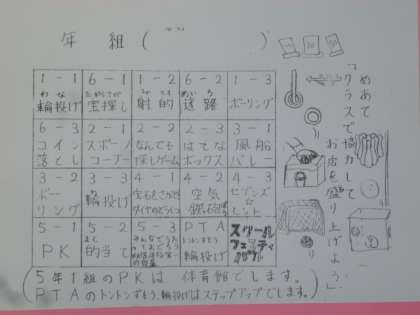 年 組( )
1-1 6-1 1-2 6-2 1-3
わな たからさが しゃてき めいろ
輪投げ 宝探し 射的 迷路 ボーリング
6-3 2-1 2-2 2-3 3-1
コイン スポーツ なんでも はてな 風船
落とし コーナー 探しゲーム ボックス バレー
3-2 3-3 4-1 4-2 4-3
ドー 輪投げ 宝石をさがせ 空気 セブンズ
リング ダイヤのどうくつ 砲 ☆
ヒット
5-1 5-2 5-3 PTA スクール
まとあ トントンずもう フェスティ
PK 的当て 輪投げ バル
(5年1組のPKは体育館でします。
PTAのトントンずもう、輪投げはステップアップでします。)
めあて
「クラスで協力して
お店を盛り上げよう」